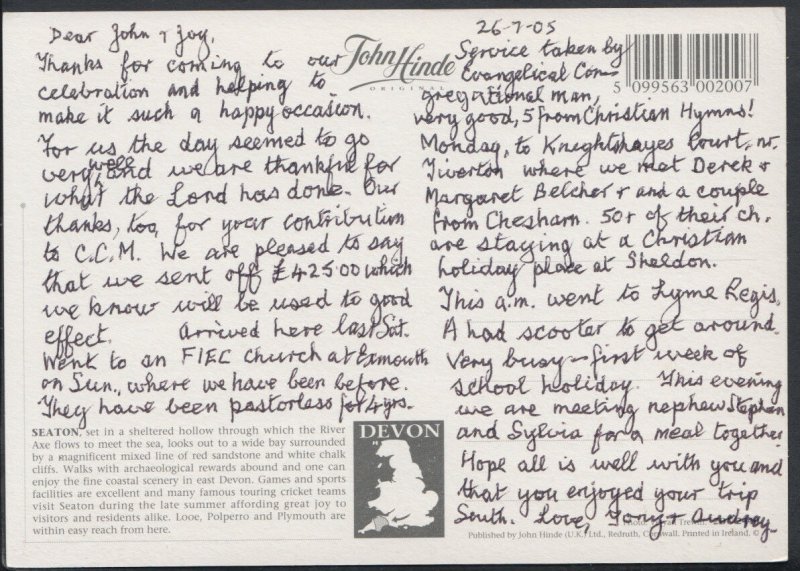 Dear John & Joy,
Thanks for coming to our
celebration and helping to
make it such a happy occasion.
For us the day seemed to go
very well, and we are thankful for
what the Lord has done. Our
thanks, too, for your contribution
to C.C.M. We are pleased to say
that we sent off £425.00 which
we know will be used to good
effect. Arrived here last Sat.
Went to an FIEC church at Exmouth
on Sun., where we have been before.
They have been pastorless for 4 yrs.
SEATON, set in a sheltered hollow through which the River
Axe flows to meet the sea, looks out to a wide bay surrounded
by a magnificent mixed line of red sandstone and white chalk
cliffs. Walks with archaeological rewards abound and one can
enjoy the fine coastal scenery in east Devon. Games and sports
facilities are excellent and many famous touring cricket teams
visit Seaton during the late summer affording great joy to
visitors and residents alike. Looe, Polperro and Plymouth are
within easy reach from here.
DEVON
John Hinde
ORIGINAL
5 099563 002007
26-7-05
Service taken by
Evangelical Con-
gregational man,
very good, 5 from Christian Hymns!
Monday, to Knightshayes Court, nr.
Tiverton where we met Derek &
Margaret Belcher & and a couple
from Chesham. 50+ of their ch.
are staying at a Christian
holiday place at Sheldon.
This a.m. went to Lyme Regis.
A had scooter to get around.
Very busy - first week of
school holiday. This evening
we are meeting nephew Stephen
and Sylvia for a meal together.
Hope all is well with you and
that you enjoyed your trip
South. Love, Tony & Audrey.
Photo:
Published by John Hinde (U.K.) Ltd., Redruth, Cornwall. Printed in Ireland. ©